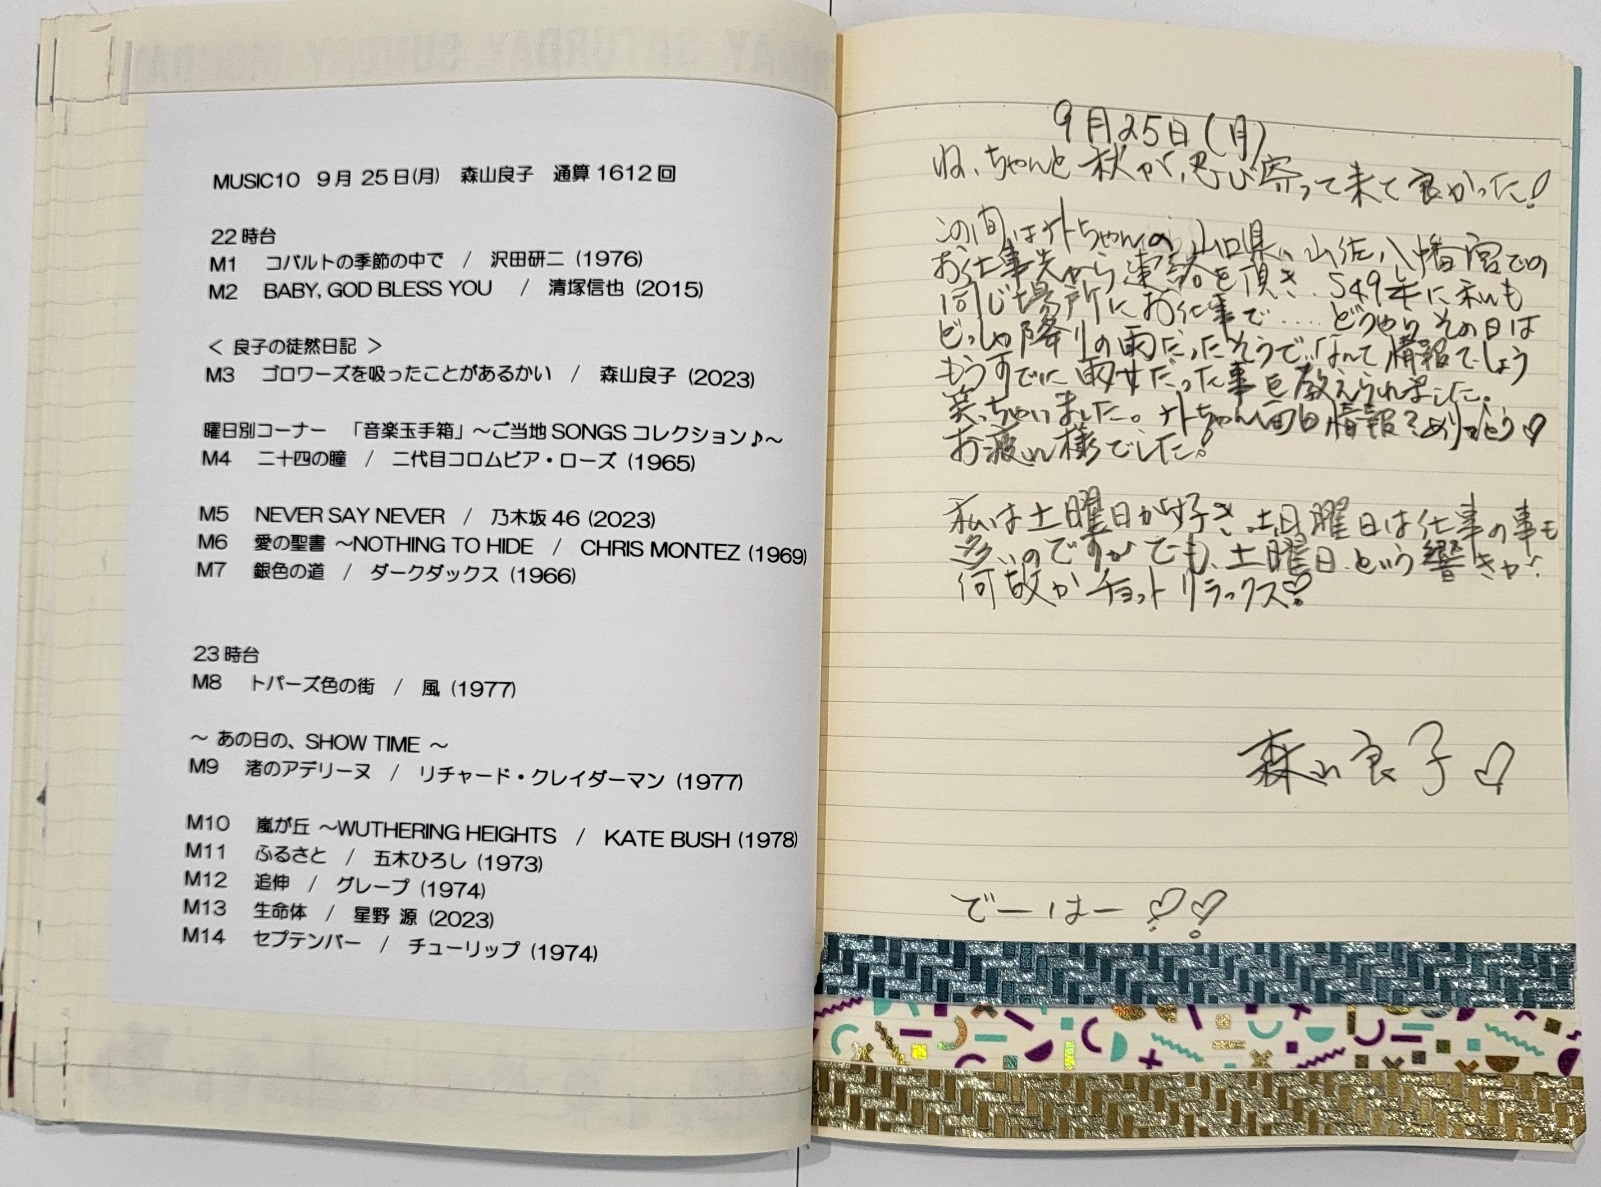 MUSIC10 9月25日(月) 森山良子 通算1612回
22時台
M1 コバルトの季節の中で / 沢田研二 (1976)
M2 BABY, GOD BLESS YOU / 清塚信也 (2015)
< 良子の徒然日記 >
M3 ゴロワーズを吸ったことがあるかい / 森山良子 (2023)
曜日別コーナー 「音楽玉手箱」～ご当地SONGSコレクション♪～
M4 二十四の瞳 / 二代目コロムビア・ローズ (1965)
M5 NEVER SAY NEVER / 乃木坂46 (2023)
M6 愛の聖書 ～NOTHING TO HIDE / CHRIS MONTEZ (1969)
M7 銀色の道 / ダークダックス (1966)
23時台
M8 トパーズ色の街 / 風 (1977)
～ あの日の、SHOW TIME ～
M9 渚のアデリーヌ / リチャード・クレイダーマン (1977)
M10 嵐が丘 ～WUTHERING HEIGHTS / KATE BUSH (1978)
M11 ふるさと / 五木ひろし (1973)
M12 追伸 / グレープ (1974)
M13 生命体 / 星野 源 (2023)
M14 セプテンバー / チューリップ (1974)
9月25日(月)
ね、ちゃんと秋が、忍び寄って来て良かった!
この間は ちゃんの 山口県、山佐八幡宮での
お仕事先から連絡を頂き、S49年に私も
同じ場所にお仕事で.... どうやら その日は
どっしゃ降りの雨だったそうで、「なんて情報でしょう
もうすでに雨女だった事を教えられました。
笑っちゃいました。 ちゃん面白情報をありがとう♡
お疲れ様でした!
私は土曜日が好き、土日曜日は仕事の事も
多いのですがでも、土曜日、という響きが、
何故かチョットリラックス♡
森山良子♡
でーはー♡♡